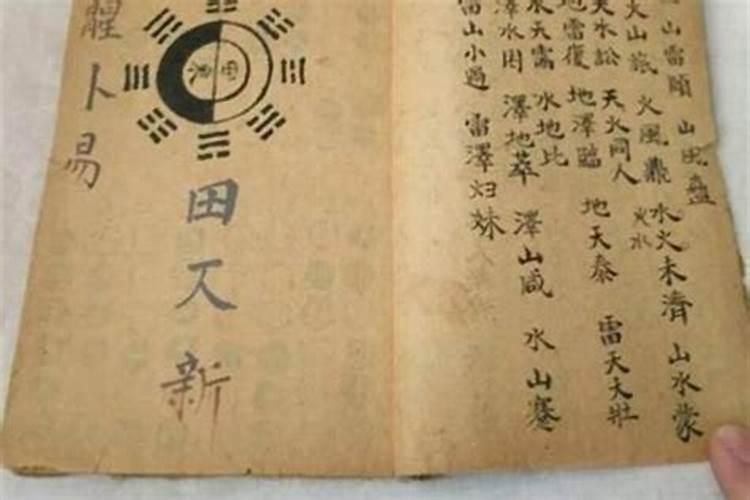 山雷頤 山風蠱
火山旅 火風鼎 水火未濟 火水 山水蒙
天水訟 天火同人
地雷復 地澤臨 地天泰 雷天大壯
水天需 水地比
澤水困 澤地萃 澤山咸 水山蹇
雷山小過 雷澤归妹
田 新
卜易